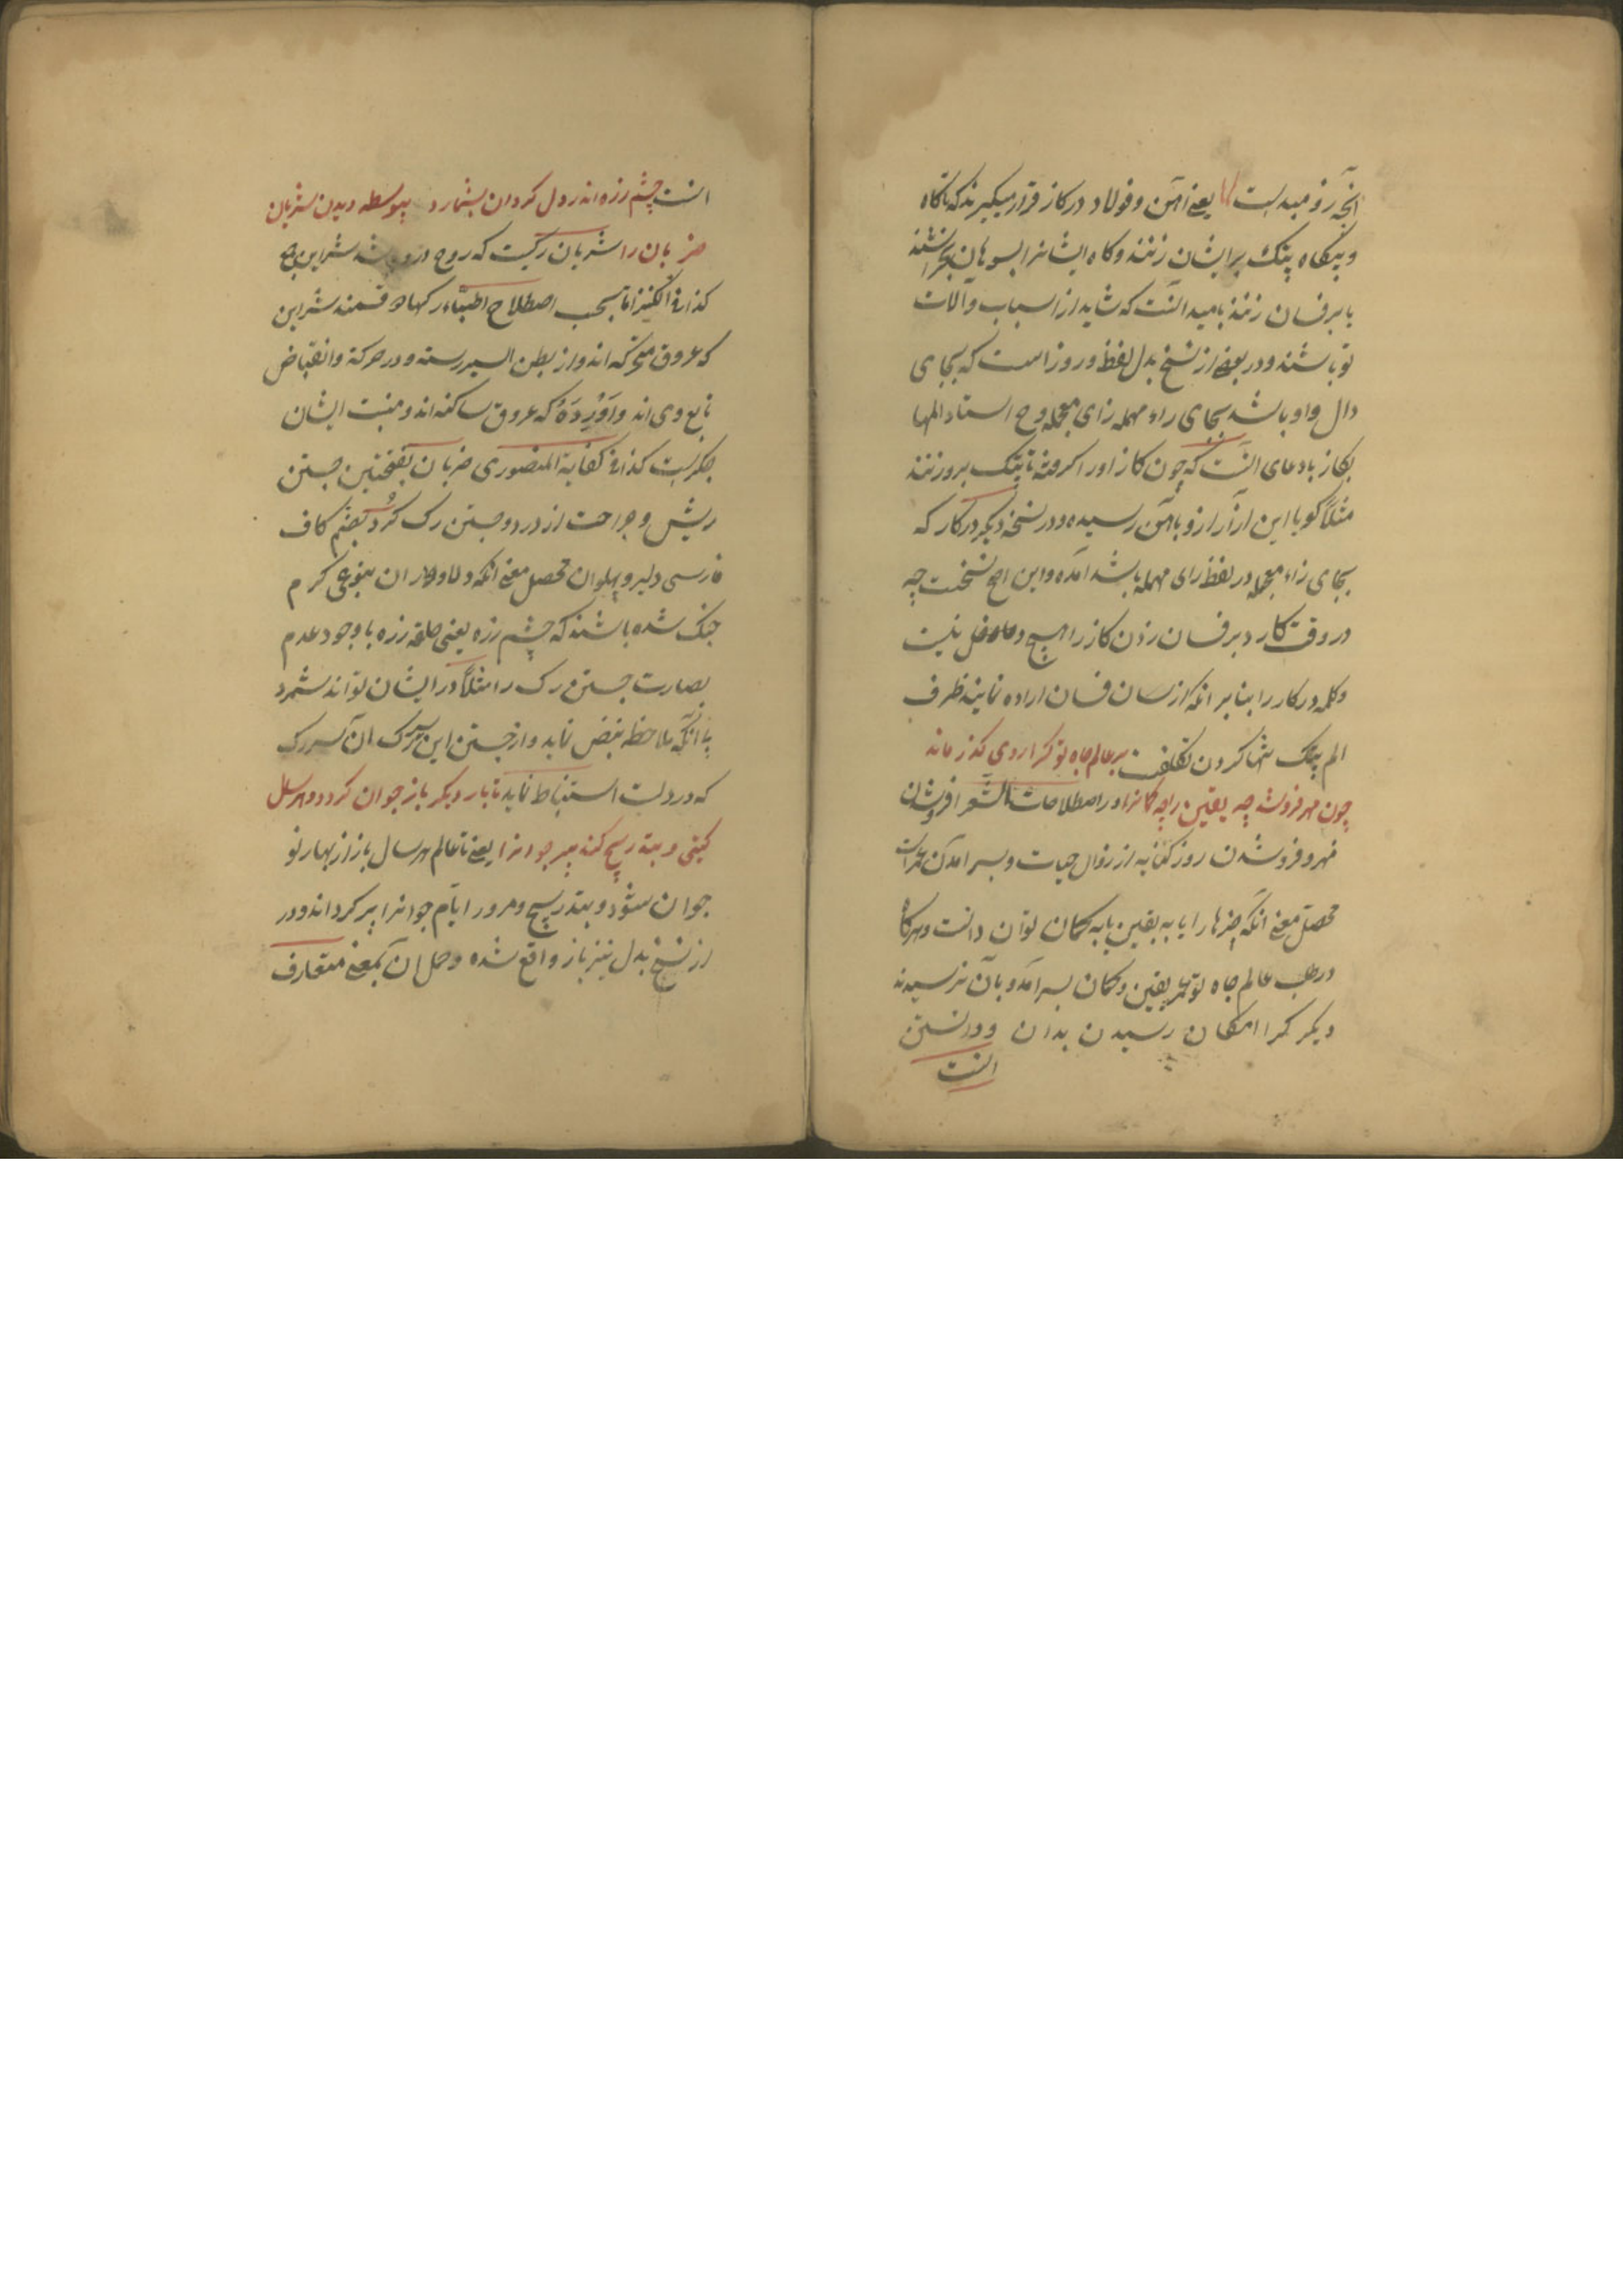 یعنے آهن و فولاد در کاز قرار میگیرند که تا کاه
و بیکاه پتک بر ایشان زنند و کاه ایشانرا بسوهان
یا بر فسان زنند بامید آنست که شاید از اسباب و آلات
تو باشند و در بعضے از نسخ بدل لفظ و روز است که بجای
دال واو باشد بجای راء مهمله زای معجمه و ح اسناد المها
بکاز بادعای آنست که چون کاز او را کرفته تا پتک برو زنند
مثلاً کویا این آزار ازو بآهن رسیده و در نسخهٔ دیکر در کار که
بجای زاء معجمه در لفظ رای مهمله باشد آمده و این اصح نسخست چه
در وقت کارد بر فسان زدن کاز را هیچ دخل نیست
و کلمه در کار را بنابر آنکه از سان فسان اراده نمایند ظرف
الم پتک تنها کردن تکلفست بر عالم جاه تو کرا روی کذر ماند
چون مهر فرو شد چه یقین را چه کمانرا در اصطلاحات الشعرا فروشدن
فرو شدن روز کنایه از زوال حیات و بسر آمدن
محصل معنے آنکه چیزها را یا به یقین یا به کمان توان دانست و هرکاه
در طلب عالم جاه تو عمر یقین و کمان بسر آمد و بآن نرسیدند
دیکر کرا امکان رسیدن بدان و دانستن
آنست
آنست چشم زره اندر دل کردان بشمارد بیواسطه دیدن شریان
ضربان را شریان رکیست که روح درو باشد شراین ج
کذا فی الکنز اما بحسب اصطلاح اطباء رکها دو قسمند شراین
که عروق متحرکه اند و از بطن ایسر رسته و در حرکة و انقباض
تابع وی اند و آوْرِدَهٔ که عروق ساکنه اند و منبت ایشان
جکر است کذا فی کفایة المنصوری ضربان بفتحتین جستن
ریش و جراحت از درد و جستن رک کُرد بضم کاف
فارسی دلیر و پهلوان محصل معنے آنکه دلاوران بنوعی کرم
جنک شده باشند که چشم زره یعنی حلقه زره با وجود عدم
بصارت جستن رک را مثلاً در ایشان تواند شمرد
بی آنکه ملاحظه نبض نماید و از جستن این
که در دلست استنباط نماید تا بار دیکر باز جوان کردد و هر سال
کیتی و بتدریج کند پیر جوانرا یعنے تا عالم هر سال باز از بهار نو
جوان شود و بتدریج و مرور ایام جوانرا پیر کرداند و در
از نسخ بدل نیز باز واقع شده و حمل آن بمعنے متعارف